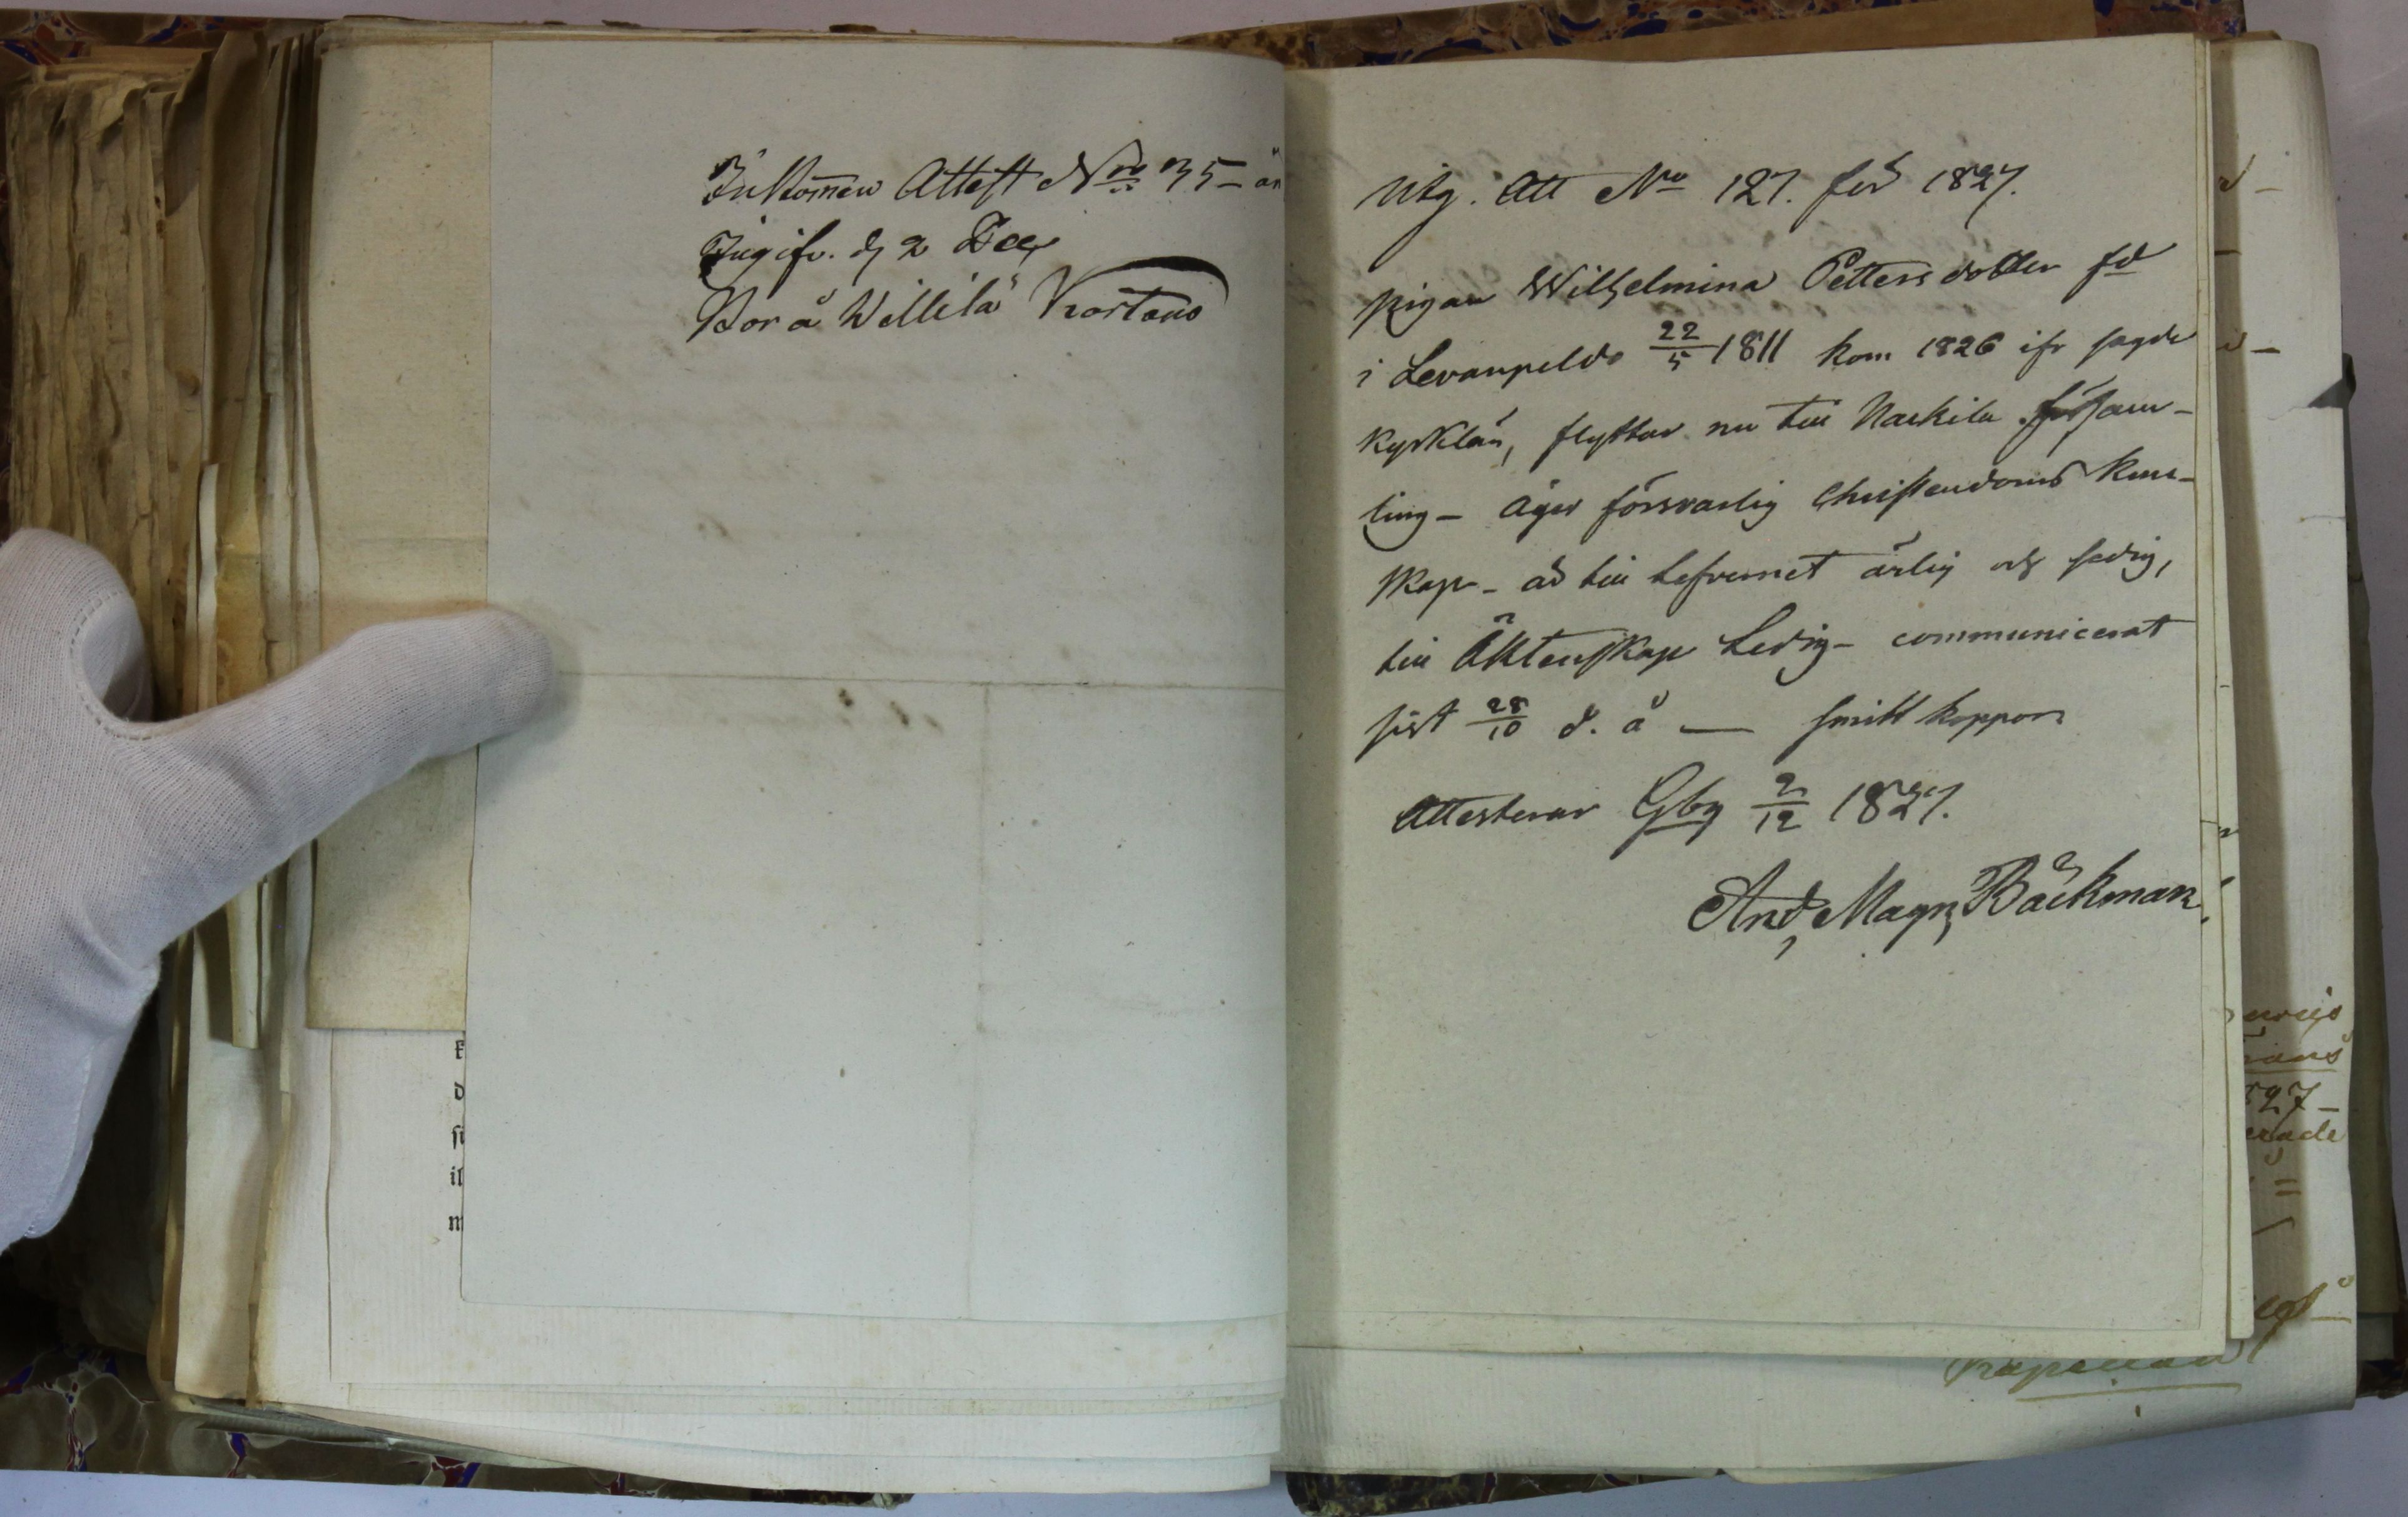 Inkom̄en Attest No 35 - är
Ingifv. d 2 Dec
Bor å Willilä Kartano
k
d
il
m
Utg. Att No 127. för 1827.
pigan Wilhelmina Pettersdotter fd
i Levanpeldo 22/5 1811 kom 1826 ifr sagde
Kyrklän, flyttar nu till Naskila församling
ling - äger försvarlig Christendoms kun-
skap - är till lefvernet ärlig och sedig,
till Äktenskap Ledig - communicerat
sist 28/10 d. å — smitt koppor
Attesterar Gby 2/12 1827.
And, Magn, Bäckman.
527 -
erade